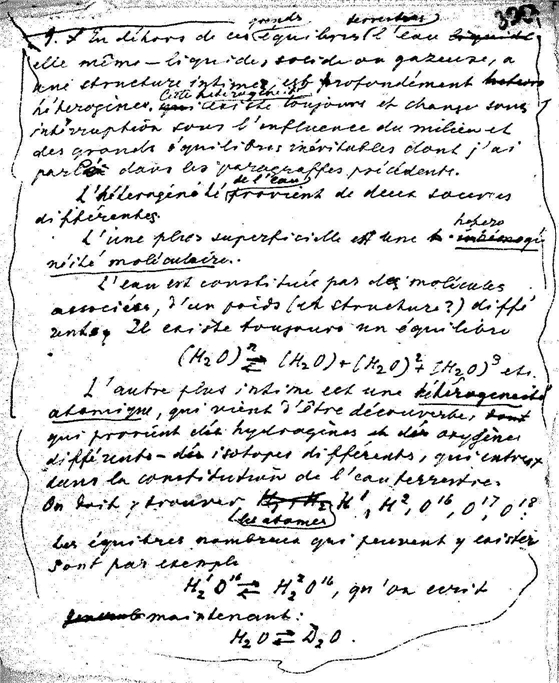 grands terrestres 322
9. En dehors de ces équilibres l'eau liquide
elle même – liquide, solide ou gazeuse, a
une structure intime, est profondément
hétérogène, Cette hétérogénéité existe toujours et change sans
interruption sous l'influence du milieu et
des grands équilibres inévitables dont j'ai
parlé dans les paragraffes précédents.
L'hétérogénéité de l'eau provient de deux sources
différentes.
L'une plus superficielle est une hétérogé
néité moléculaire.
L'eau est constituée par des molécules
associées, d'un poids (et structure?) diffé
rents. Il existe toujours un équilibre
(H₂O)ⁿ ⇌ (H₂O) + (H₂O)² + (H₂O)³ etc.
L'autre plus intime est une hétérogeneité
atomique, qui vient d'être découverte, dont
qui provient des hydrogènes et des oxygènes
différents – des isotopes différents, qui entrent
dans la constitution de l'eau terrestre.
On doit y trouver H₁, H₂ les atomes H¹, H², O¹⁶, O¹⁷, O¹⁸.
Les équilibres nombreux qui peuvent y exister
sont par exemple
H₂¹O¹⁶ ⇌ H₂²O¹⁶, qu'on ecrit
maintenant:
H₂O ⇌ D₂O.